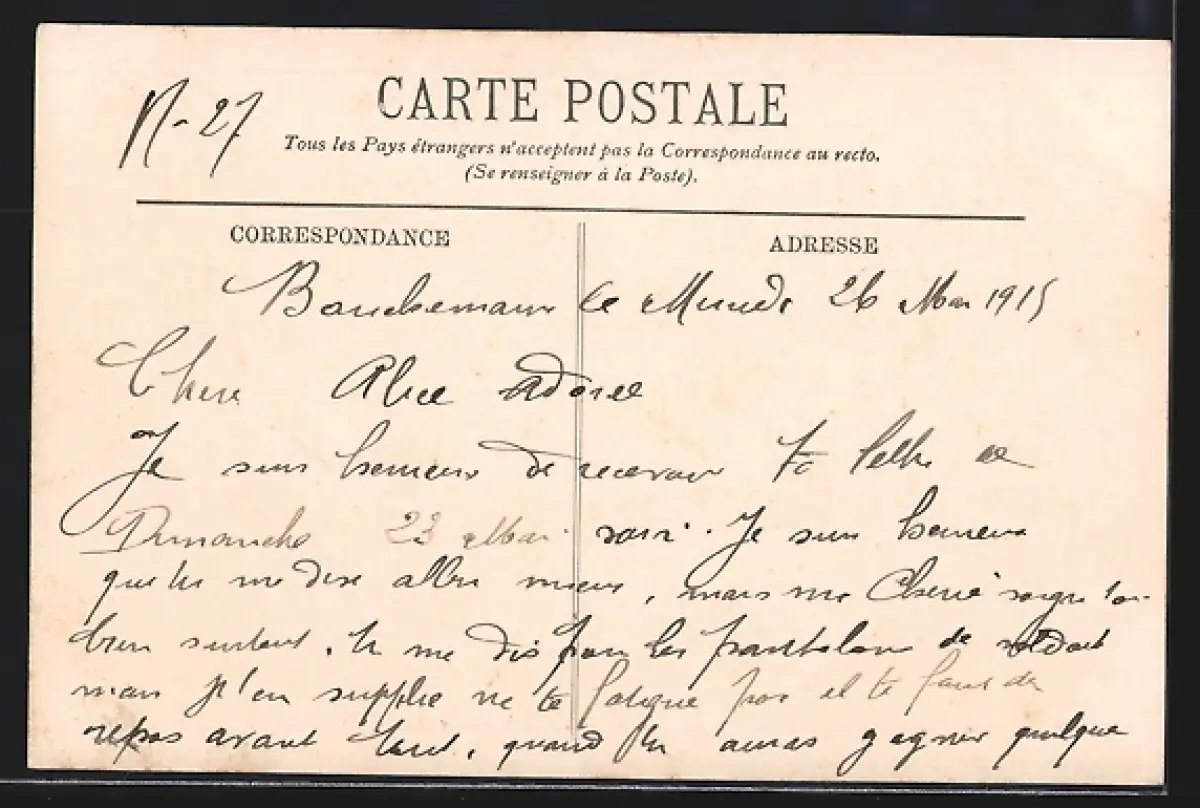 N-27
CARTE POSTALE
Tous les Pays étrangers n'acceptent pas la Correspondance au recto.
(Se renseigner à la Poste).
CORRESPONDANCE
ADRESSE
le 26 Mai 1915
Chere Alice adorée
Je suis heureux de recevoir ta lettre de
Dimanche 23 Mai soir. Je suis heureux
que tu me dise aller mieux, mais ma Cherie soigne toi
bien surtout. tu me dis faire les pantalons de soldat
mais je t'en supplie ne te fatigue pas il te faut du
repos avant tout, quand tu auras gagner quelque